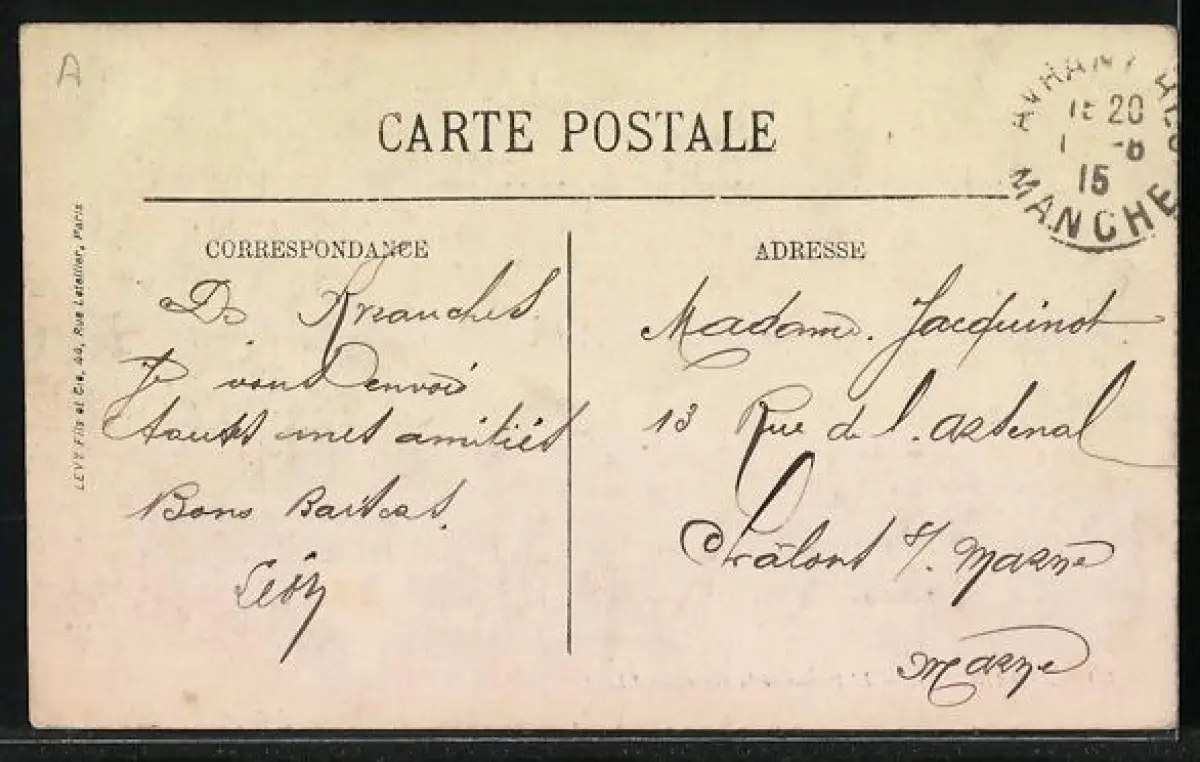 D
CARTE POSTALE
AVRANCHES
15 20
1 -6
15
MANCHE
LEVY Fils et Cie, 44, Rue Letellier, Paris
CORRESPONDANCE
D'Avranches
Je vous envoi
toutes mes amitiés
Bons Baisers.
Léon
ADRESSE
Madame. Jacquinot
13 Rue de l'arsenal
Châlons s/. Marne
Marne